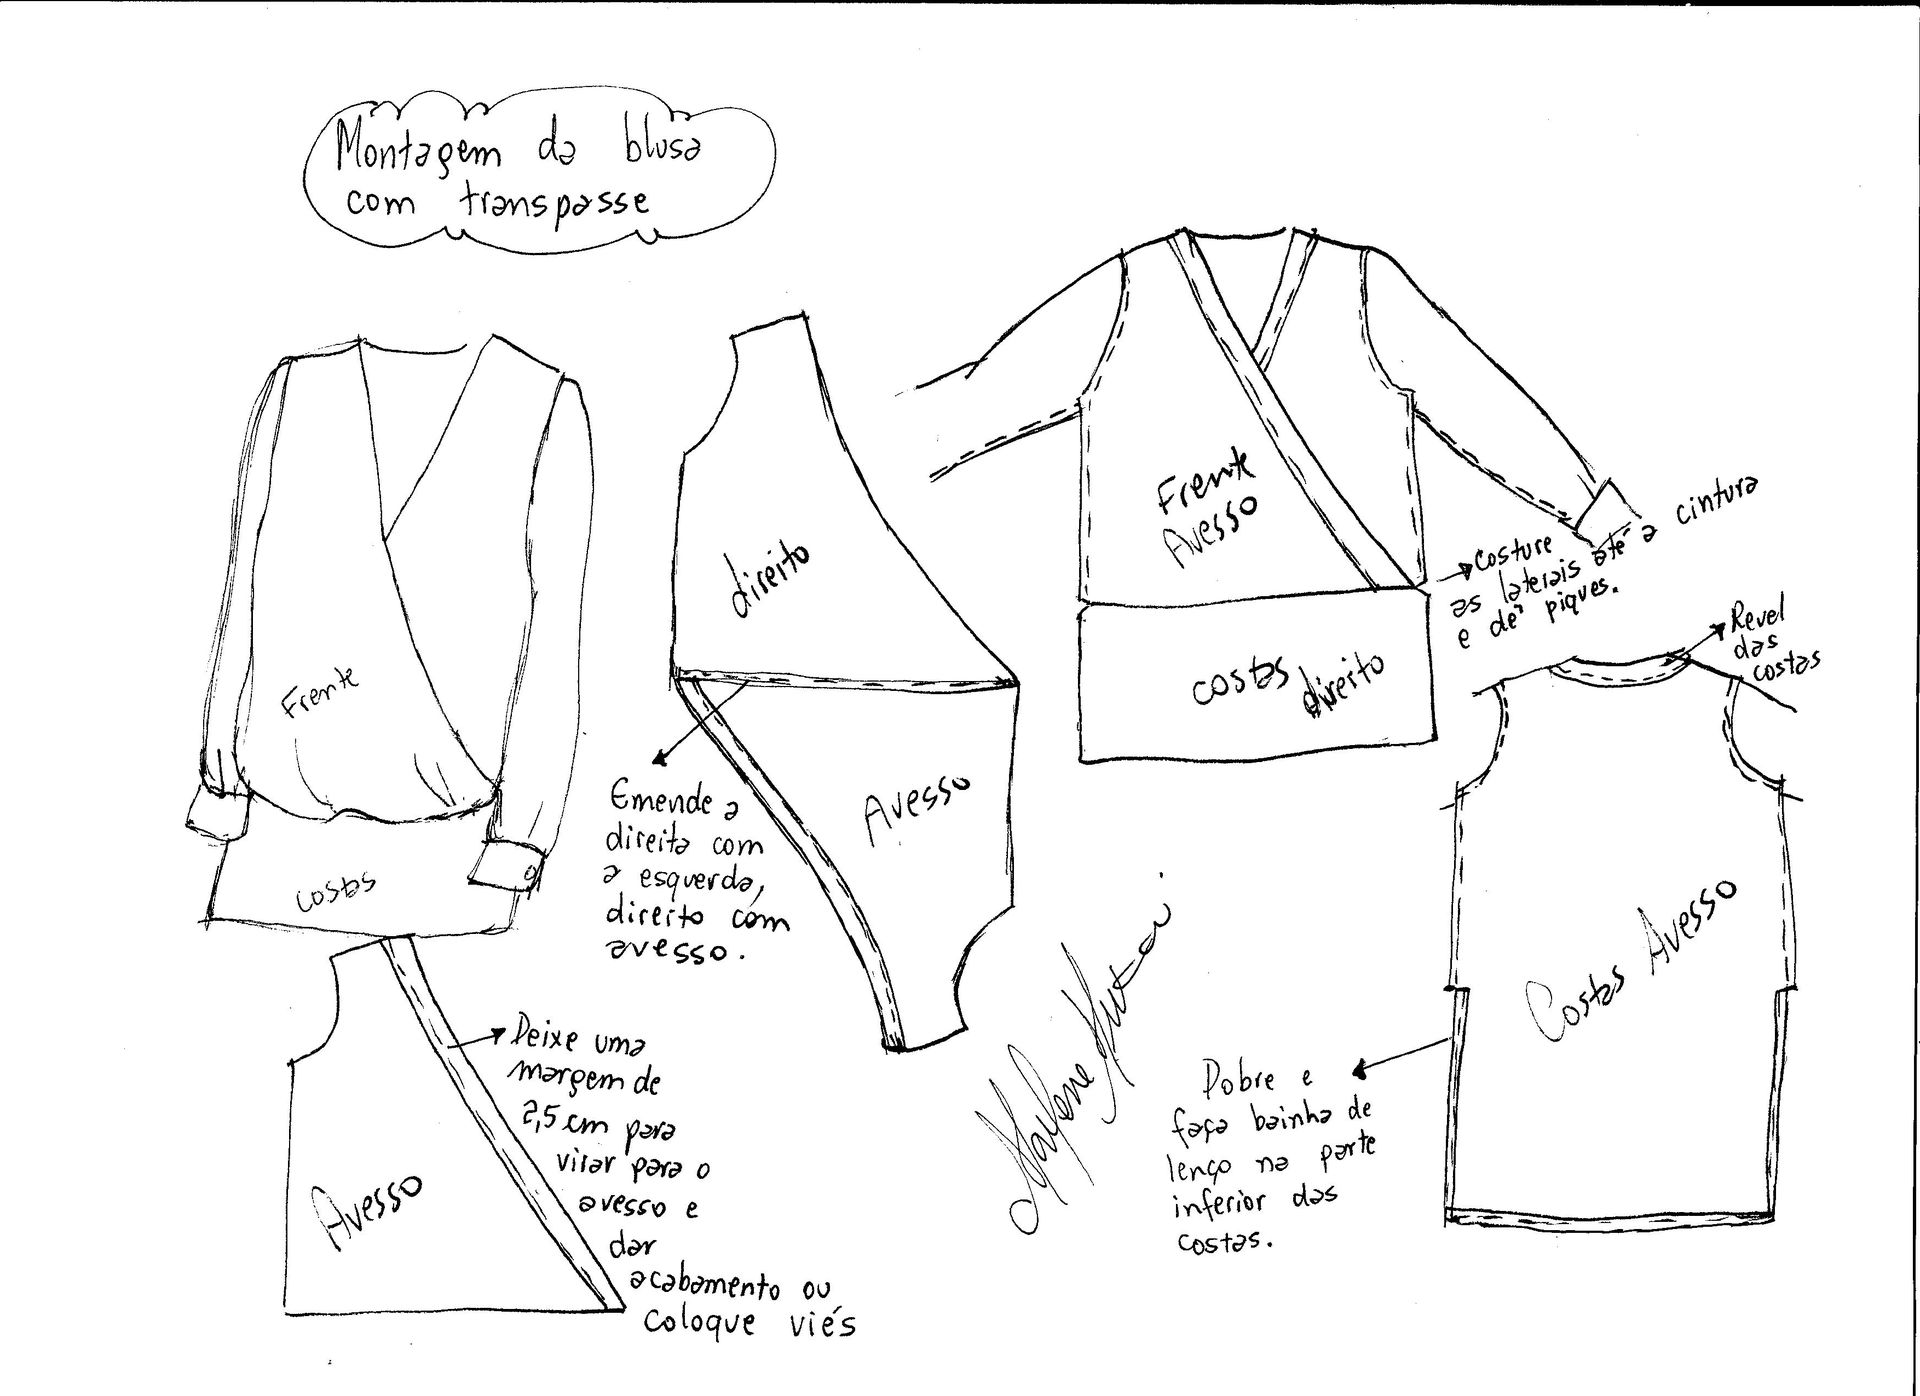 Montagem da blusa
com transpasse
Frente
costas
direito
Avesso
Emende a
direita com
a esquerda,
direito com
avesso.
Avesso
Deixe uma
margem de
2,5 cm para
virar para o
avesso e
dar
acabamento ou
coloque viés
Frente
Avesso
costas direito
Costure
as laterais até a cintura
e dê piques.
Revel
das
costas
Costas Avesso
Dobre e
faça bainha de
lenço na parte
inferior das
costas.
Marlene Mukai